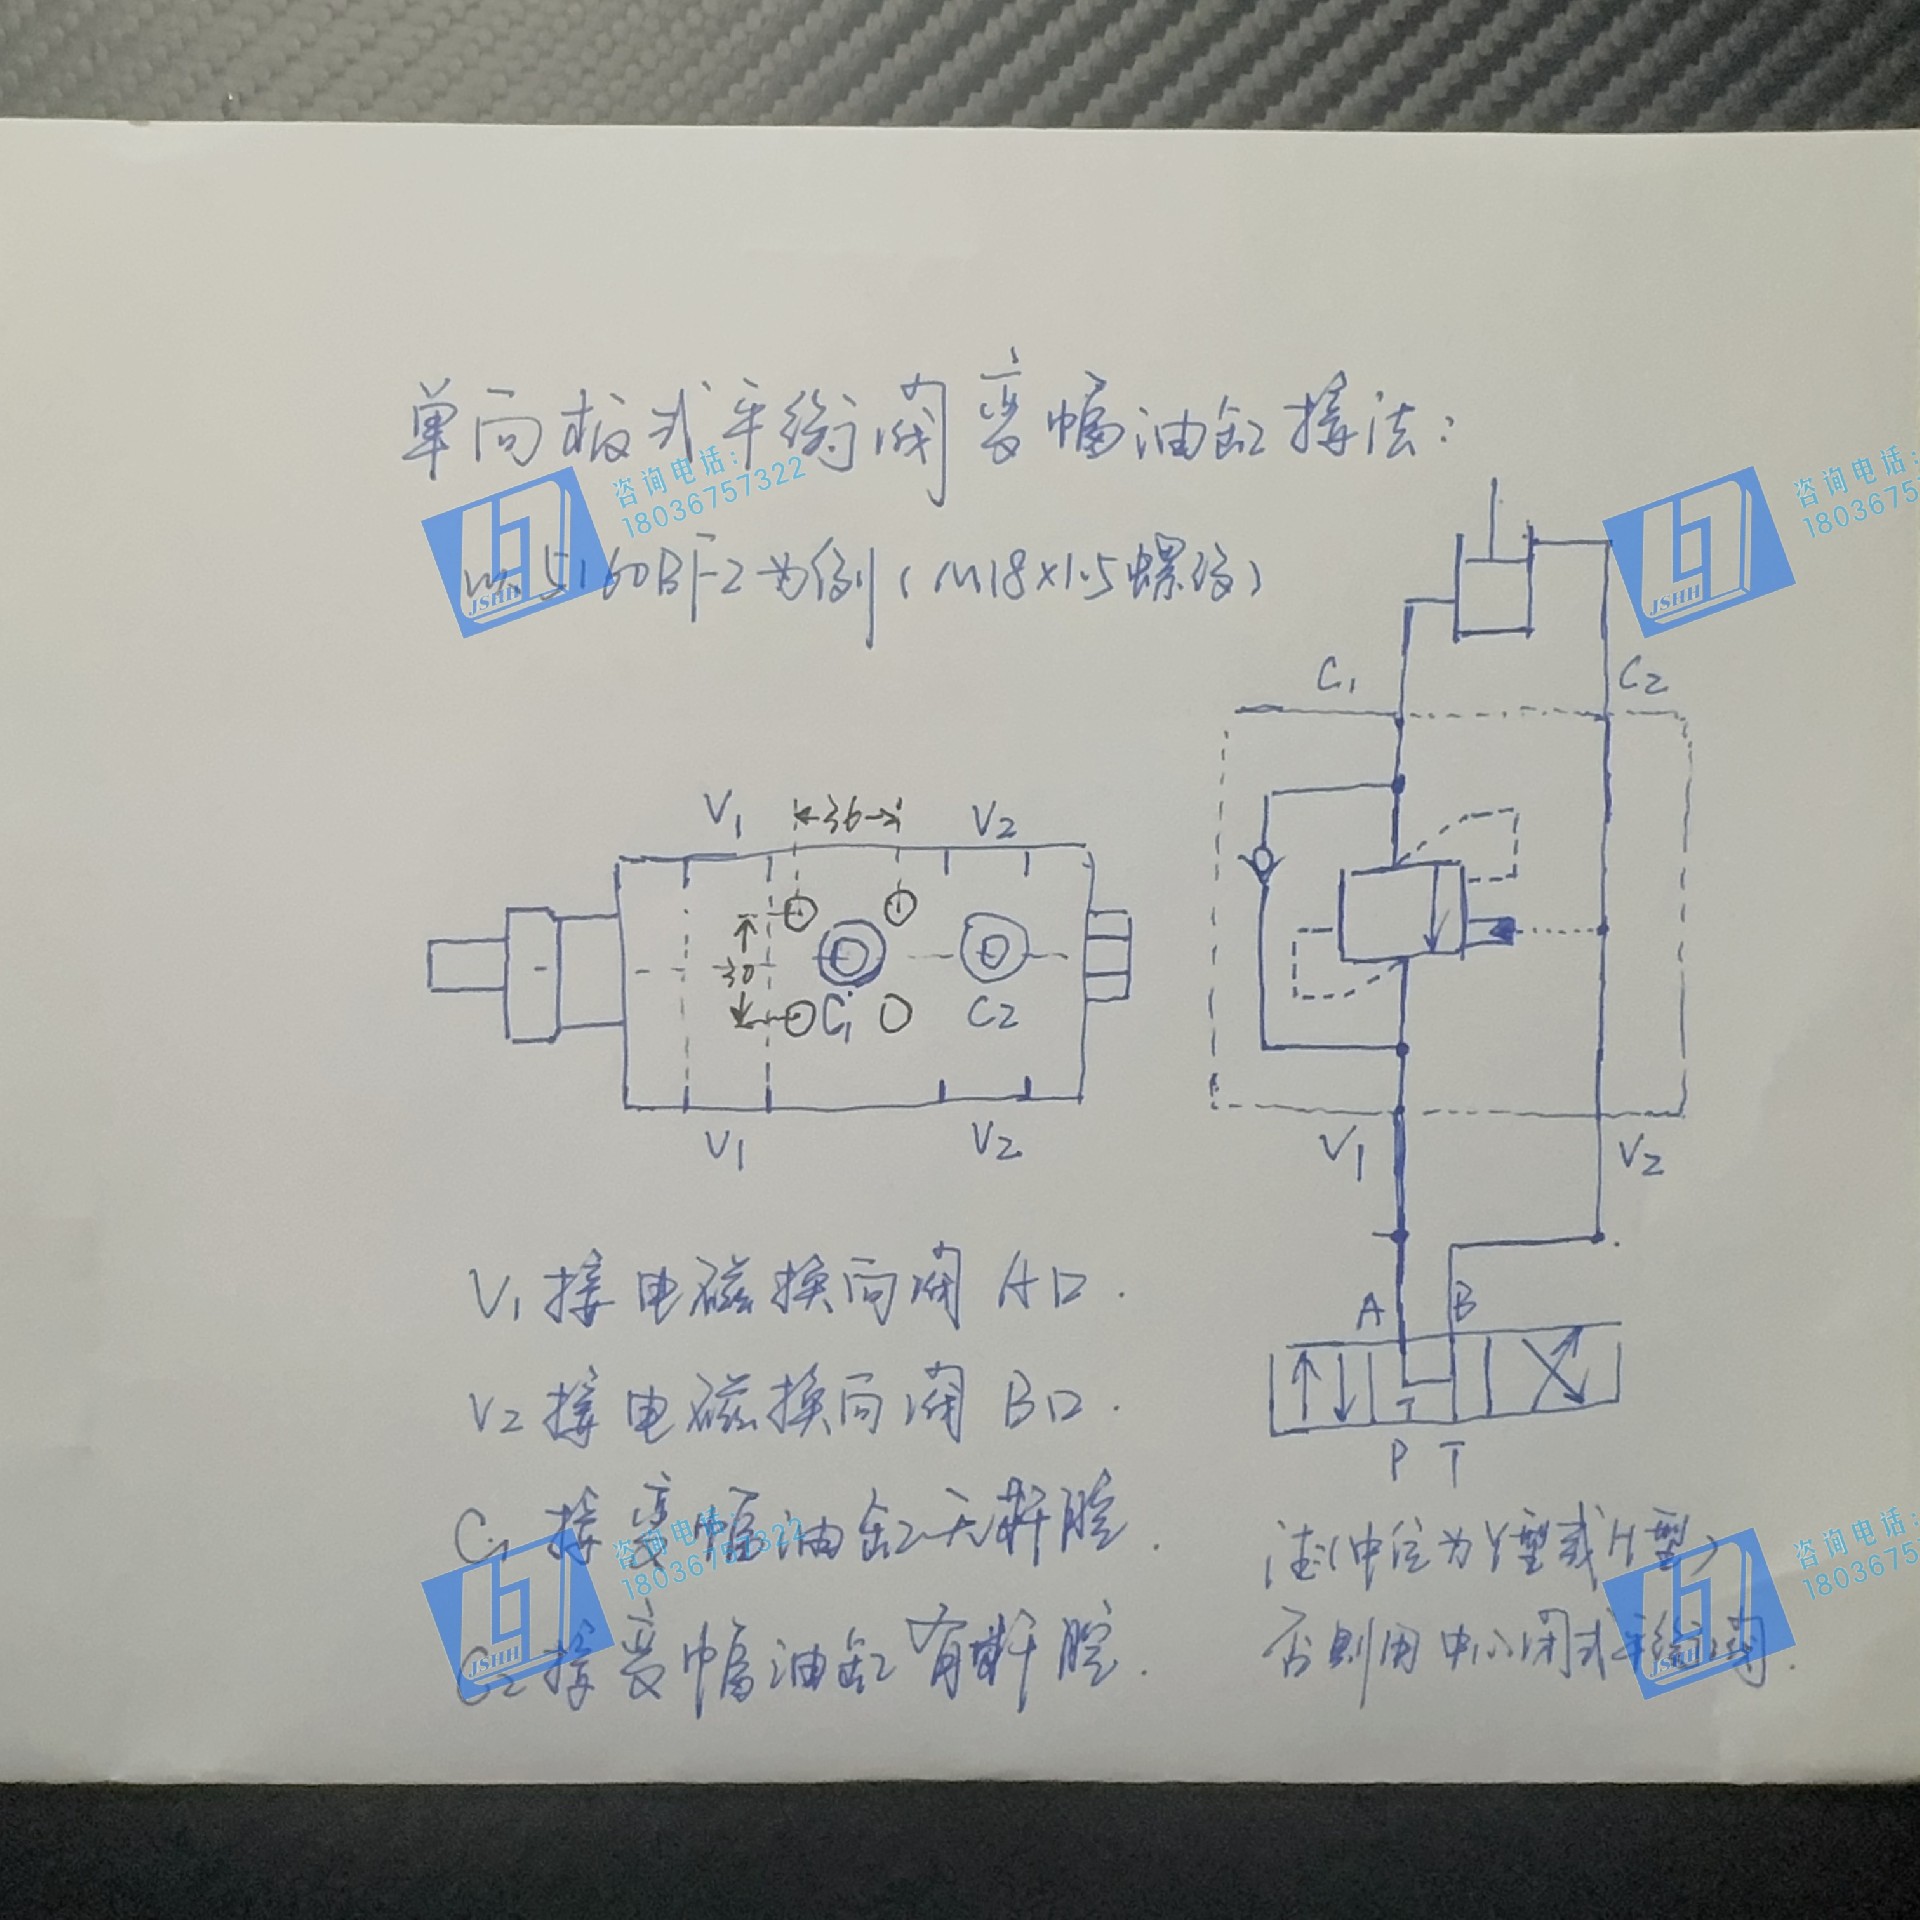 单向板式平衡阀变幅油缸接法:
以5160BF-2为例(M18×1.5螺纹)
咨询电话:
18036757322
JSHH
咨询电话:
1803675
JSHH
C1
C2
V1
36
V2
30
C1
C2
V1
V2
V1
V2
V1接电磁换向阀A口.
V2接电磁换向阀B口.
C1接变幅油缸无杆腔.
C2接变幅油缸有杆腔.
A
B
P T
注(中位为Y型或H型)
否则用中心闭式平衡阀.
咨询电话:
18036757322
JSHH
咨询电话:
1803675
JSHH